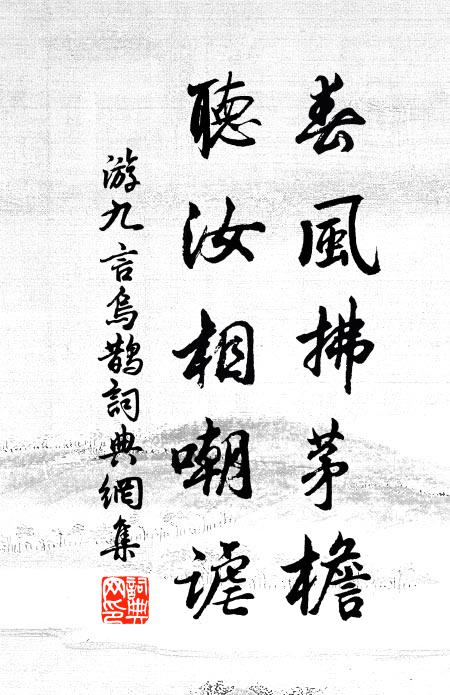 春風拂茅檐
聽汝相嘲謔
游九言烏鵲詞典網集
詞典網印